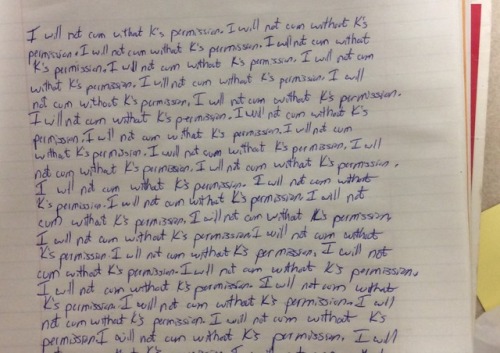 I will not cum without K's permission. I will not cum without K's
permission. I will not cum without K's permission. I will not cum without
K's permission. I will not cum without K's permission. I will not cum
without K's permission. I will not cum without K's permission. I will
not cum without K's permission. I will not cum without K's permission.
I will not cum without K's permission. I will not cum without K's
permission. I will not cum without K's permission. I will not cum
without K's permission. I will not cum without K's permission. I will
not cum without K's permission. I will not cum without K's permission.
I will not cum without K's permission. I will not cum without
K's permission. I will not cum without K's permission. I will not
cum without K's permission. I will not cum without K's permission
I will not cum without K's permission. I will not cum without
K's permission I will not cum without K's permission. I will not
cum without K's permission. I will not cum without K's permission.
I will not cum without K's permission. I will not cum without
K's permission. I will not cum without K's permission. I will
not cum without K's permission. I will not cum without K's
permission. I will not cum without K's permission. I will
not cum without K's permission. I will not cum without